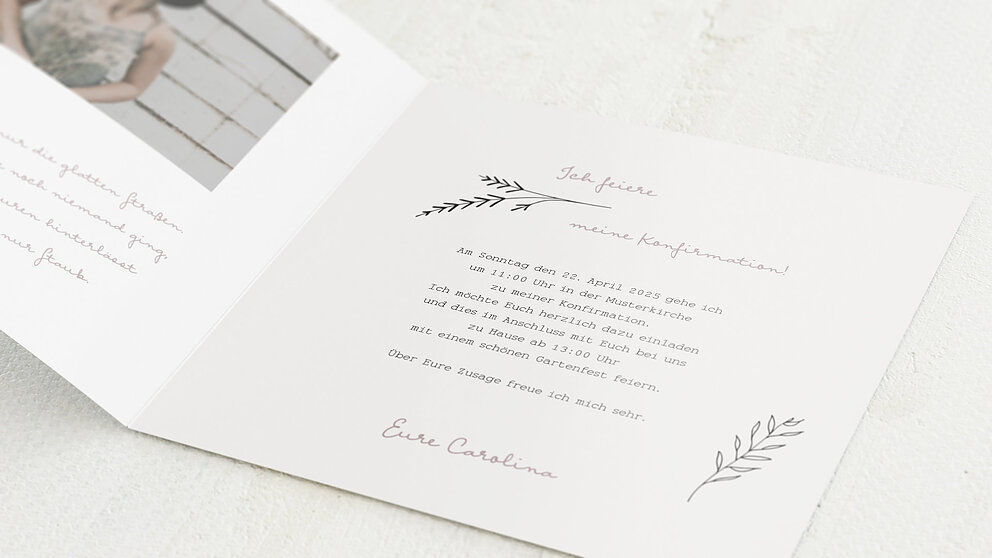 nur die glatten Straßen
noch niemand ging,
hinterlässt
nur Staub.
Ich feiere
meine Konfirmation!
Am Sonntag den 22. April 2025 gehe ich
um 11:00 Uhr in der Musterkirche
zu meiner Konfirmation.
Ich möchte Euch herzlich dazu einladen
und dies im Anschluss mit Euch bei uns
zu Hause ab 13:00 Uhr
mit einem schönen Gartenfest feiern.
Über Eure Zusage freue ich mich sehr.
Eure Carolina